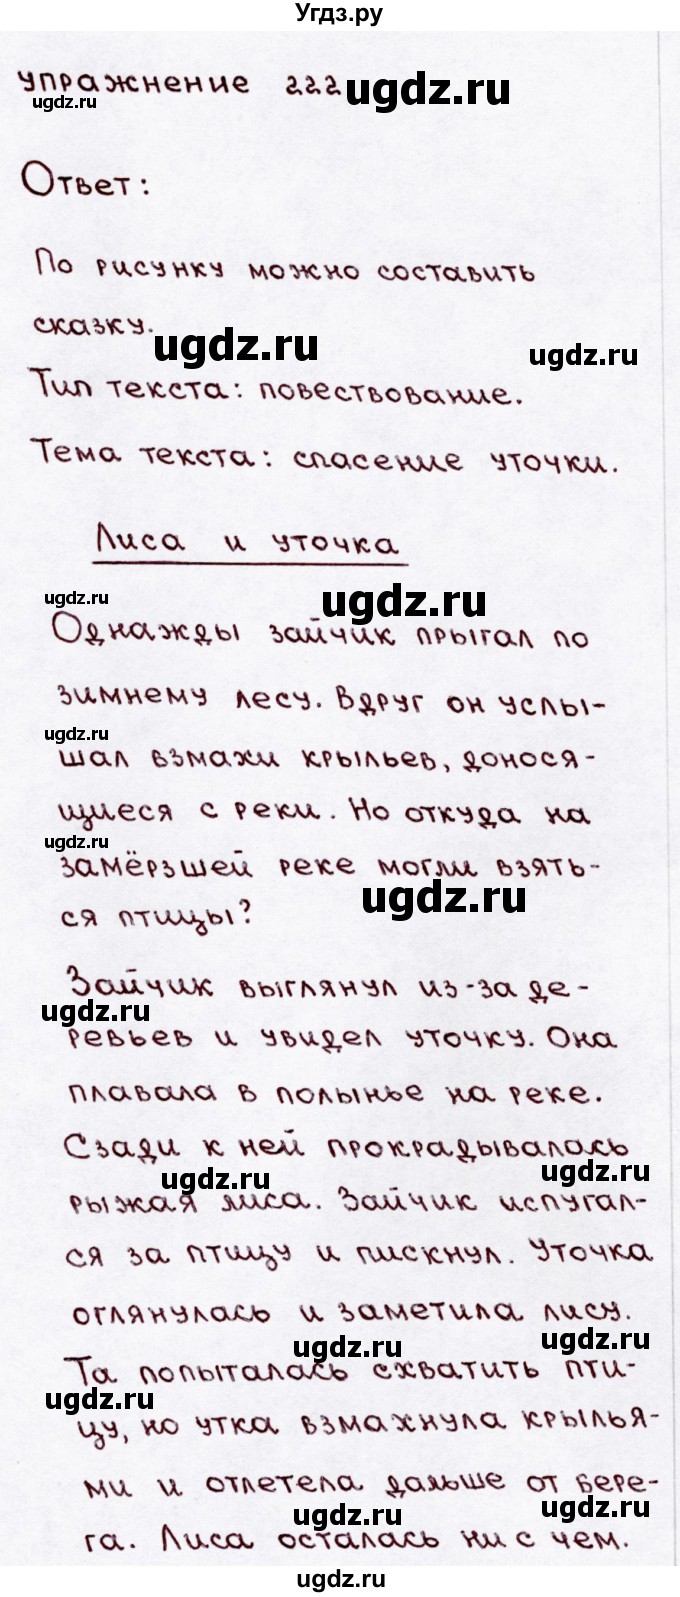 Угдз.ру
упражнение 222 ugdz.ru
ugdz.ru
Ответ:
По рисунку можно составить
сказку.
ugdz.ru
ugdz.ru
Тип текста: повествование.
Тема текста: спасение уточки.
Лиса и уточка
ugdz.ru
ugdz.ru
Однажды зайчик прыгал по
зимнему лесу. Вдруг он услы-
ugdz.ru
шал взмахи крыльев, донося-
щиеся с реки. Но откуда на
ugdz.ru
замёрзшей реке могли взять-
ugdz.ru
ся птицы?
Зайчик выглянул из-за де-
ugdz.ru
ревьев и увидел уточку. Она
плавала в полынье на реке.
Сзади к ней прокрадывалась
ugdz.ru
ugdz.ru
рыжая лиса. Зайчик испугал-
ся за птицу и пискнул. Уточка
оглянулась и заметила лису.
ugdz.ru
ugdz.ru
Та попыталась схватить пти-
ugdz.ru
цу, но утка взмахнула крылья-
ми и отлетела дальше от бере-
ugdz.ru
ugdz.ru
га. Лиса осталась ни с чем.
ugdz.ru